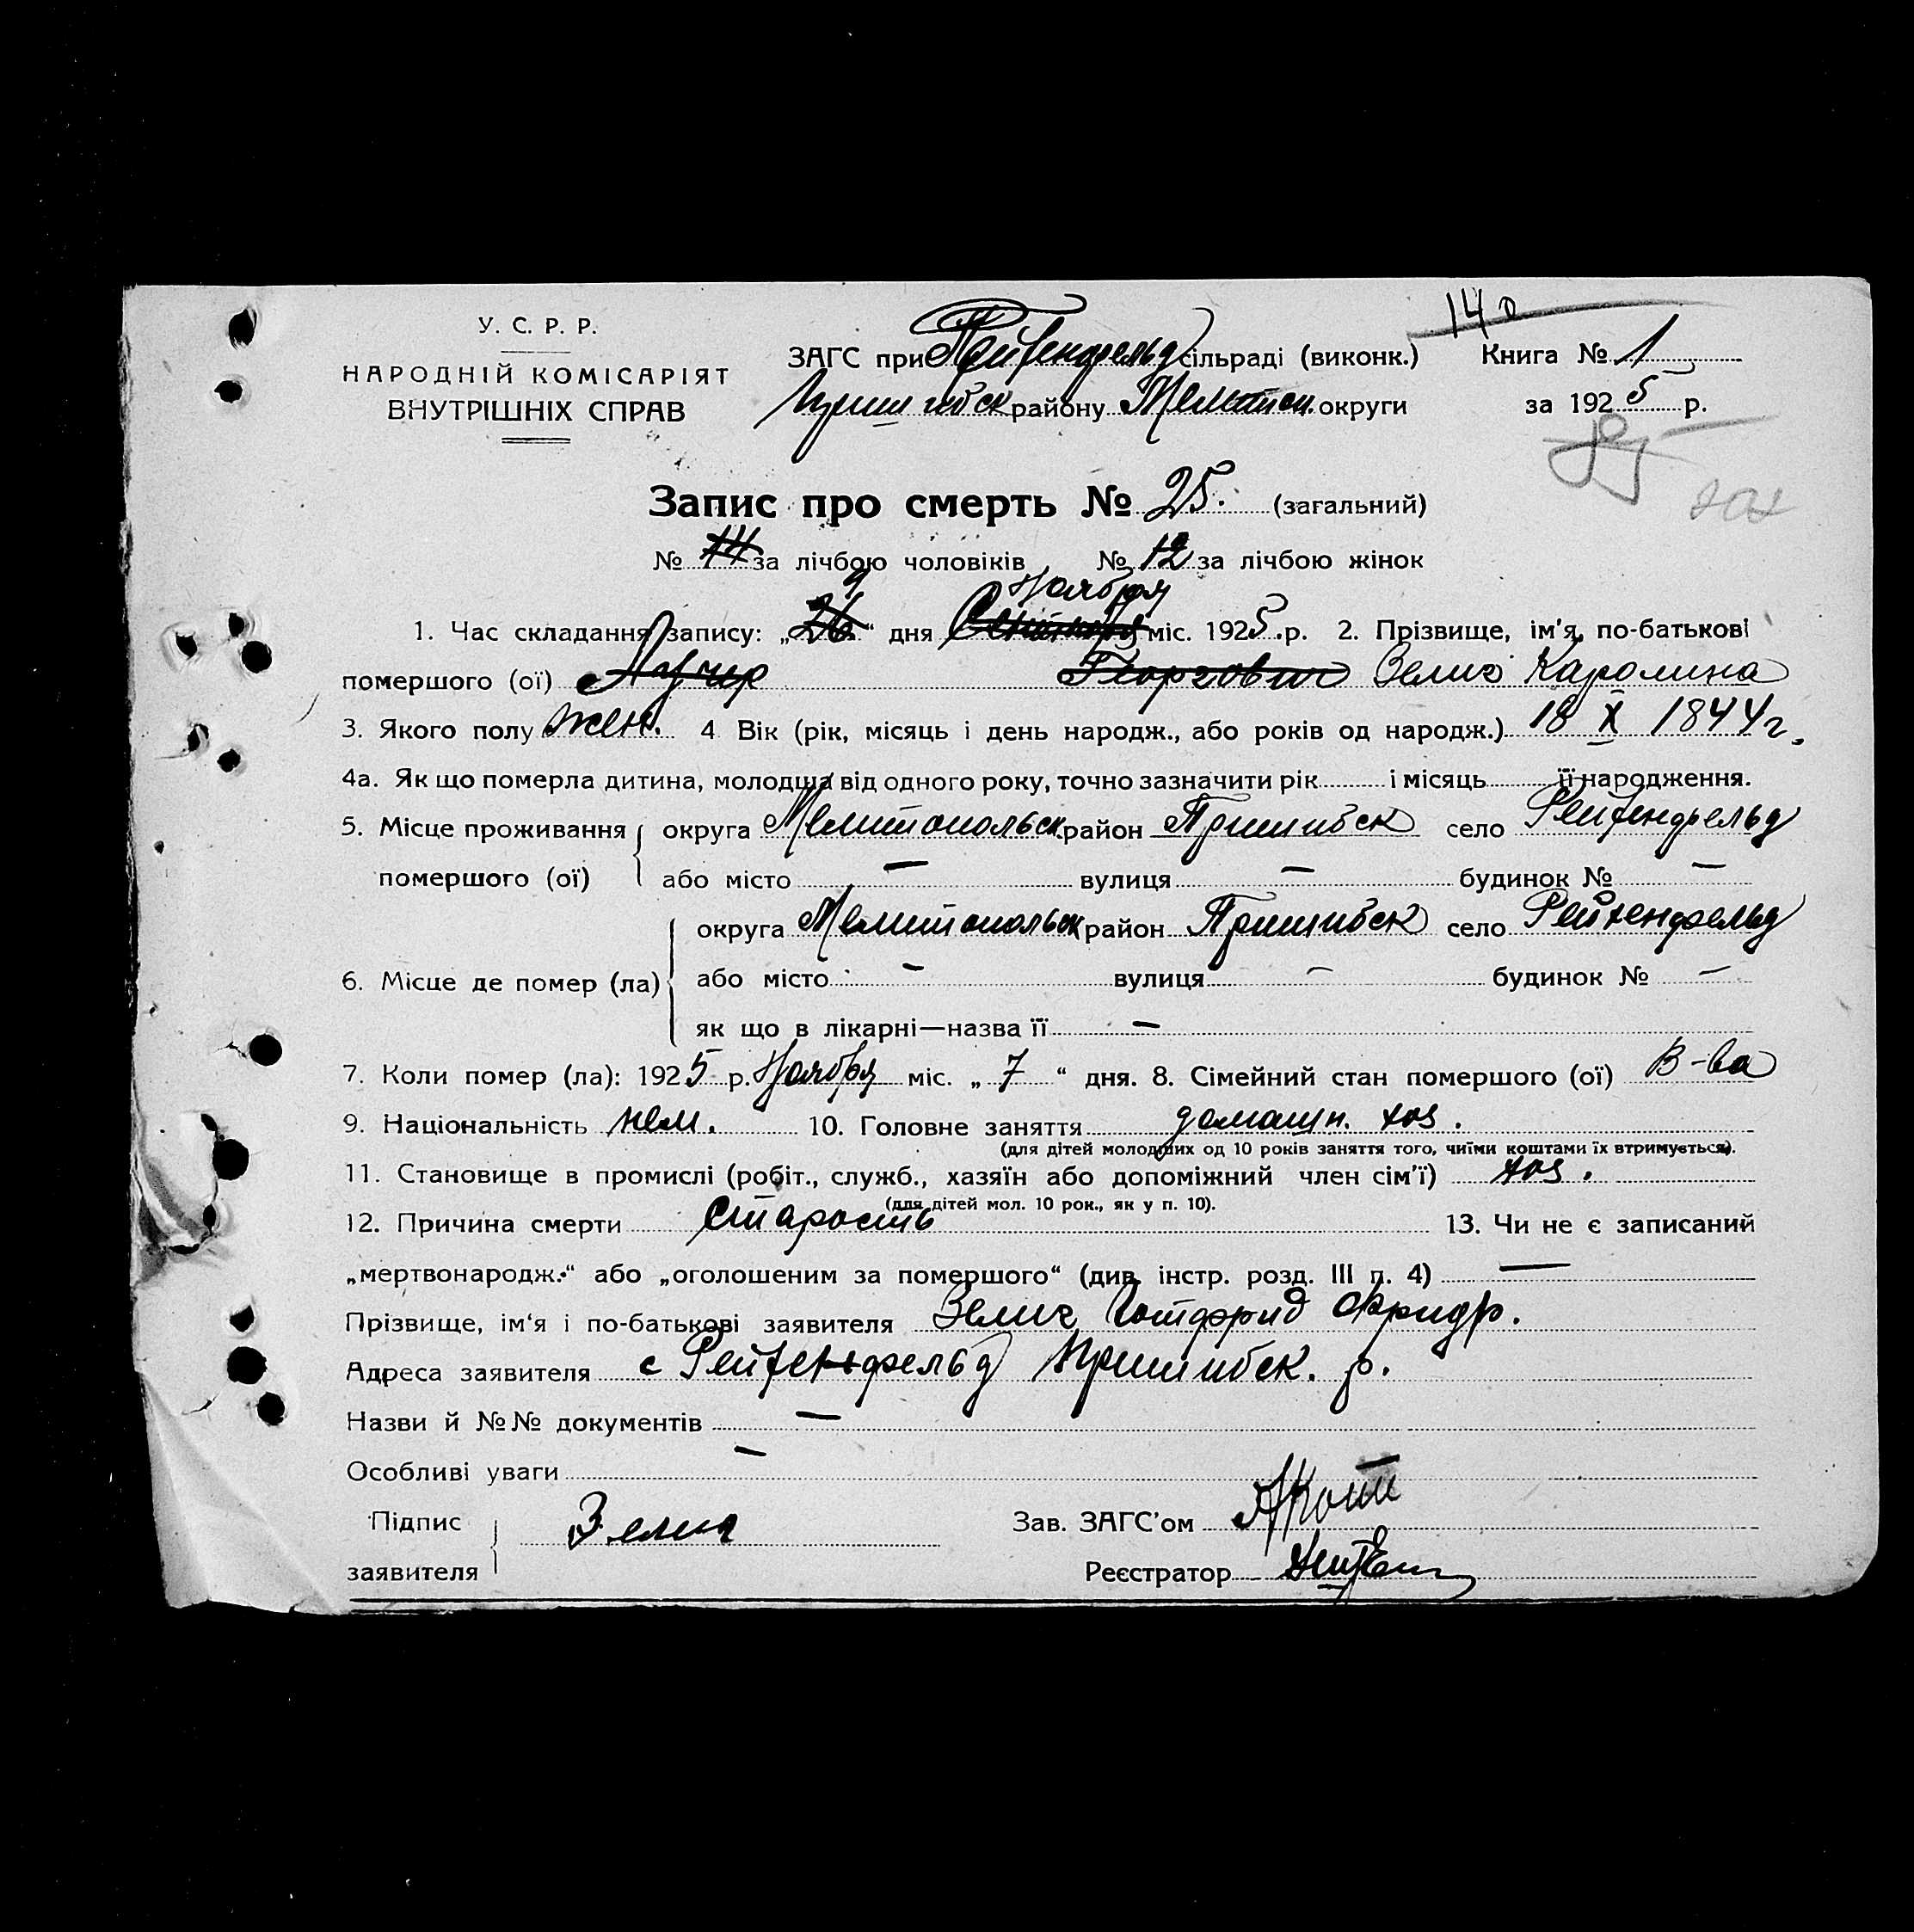 140
У. С. Р. Р.
НАРОДНІЙ КОМІСАРІЯТ
ВНУТРІШНІХ СПРАВ
ЗАГС при Рейхенфельд сільраді (виконк.)
Пришибск району Мелитоп. округи
Книга № 1
за 1925 р.
Запис про смерть № 25. (загальний)
№ 14 за лічбою чоловіків № 12 за лічбою жінок
9 Ноября
1. Час складання запису: „26“ дня Сентября міс. 1925 р. 2. Прізвище, ім'я, по-батькові
помершого (ої) Георгович Зелиг Каролина
3. Якого полу жен. 4 Вік (рік, місяць і день народж., або років од народж.) 18 X 1844 г.
4а. Як що померла дитина, молодша від одного року, точно зазначити рік і місяць її народження.
5. Місце проживання округа Мелитопольск район Пришибск село Рейхенфельд
помершого (ої) або місто — вулиця — будинок № —
округа Мелитопольск район Пришибск село Рейхенфельд
6. Місце де помер (ла) або місто - вулиця - будинок № —
як що в лікарні—назва її —
7. Коли помер (ла): 1925 р. Ноября міс. „7“ дня. 8. Сімейний стан помершого (ої) В-ва
9. Національність нем. 10. Головне заняття домашн. хоз.
(для дітей молодших од 10 років заняття того, чиїми коштами їх втримується).
11. Становище в промислі (робіт., служб., хазяїн або допоміжний член сім'ї) хоз.
(для дітей мол. 10 рок., як у п. 10).
12. Причина смерти старость 13. Чи не є записаний
„мертвонародж.“ або „оголошеним за помершого“ (див. інстр. розд. III п. 4) —
Прізвище, ім'я і по-батькові заявителя Зелиг Готфрид Фридр.
Адреса заявителя с Рейхенфельд Пришибск. р.
Назви й №№ документів —
Особливі уваги —
Підпис заявителя Зелиг
Зав. ЗАГС'ом АКотт
Реєстратор